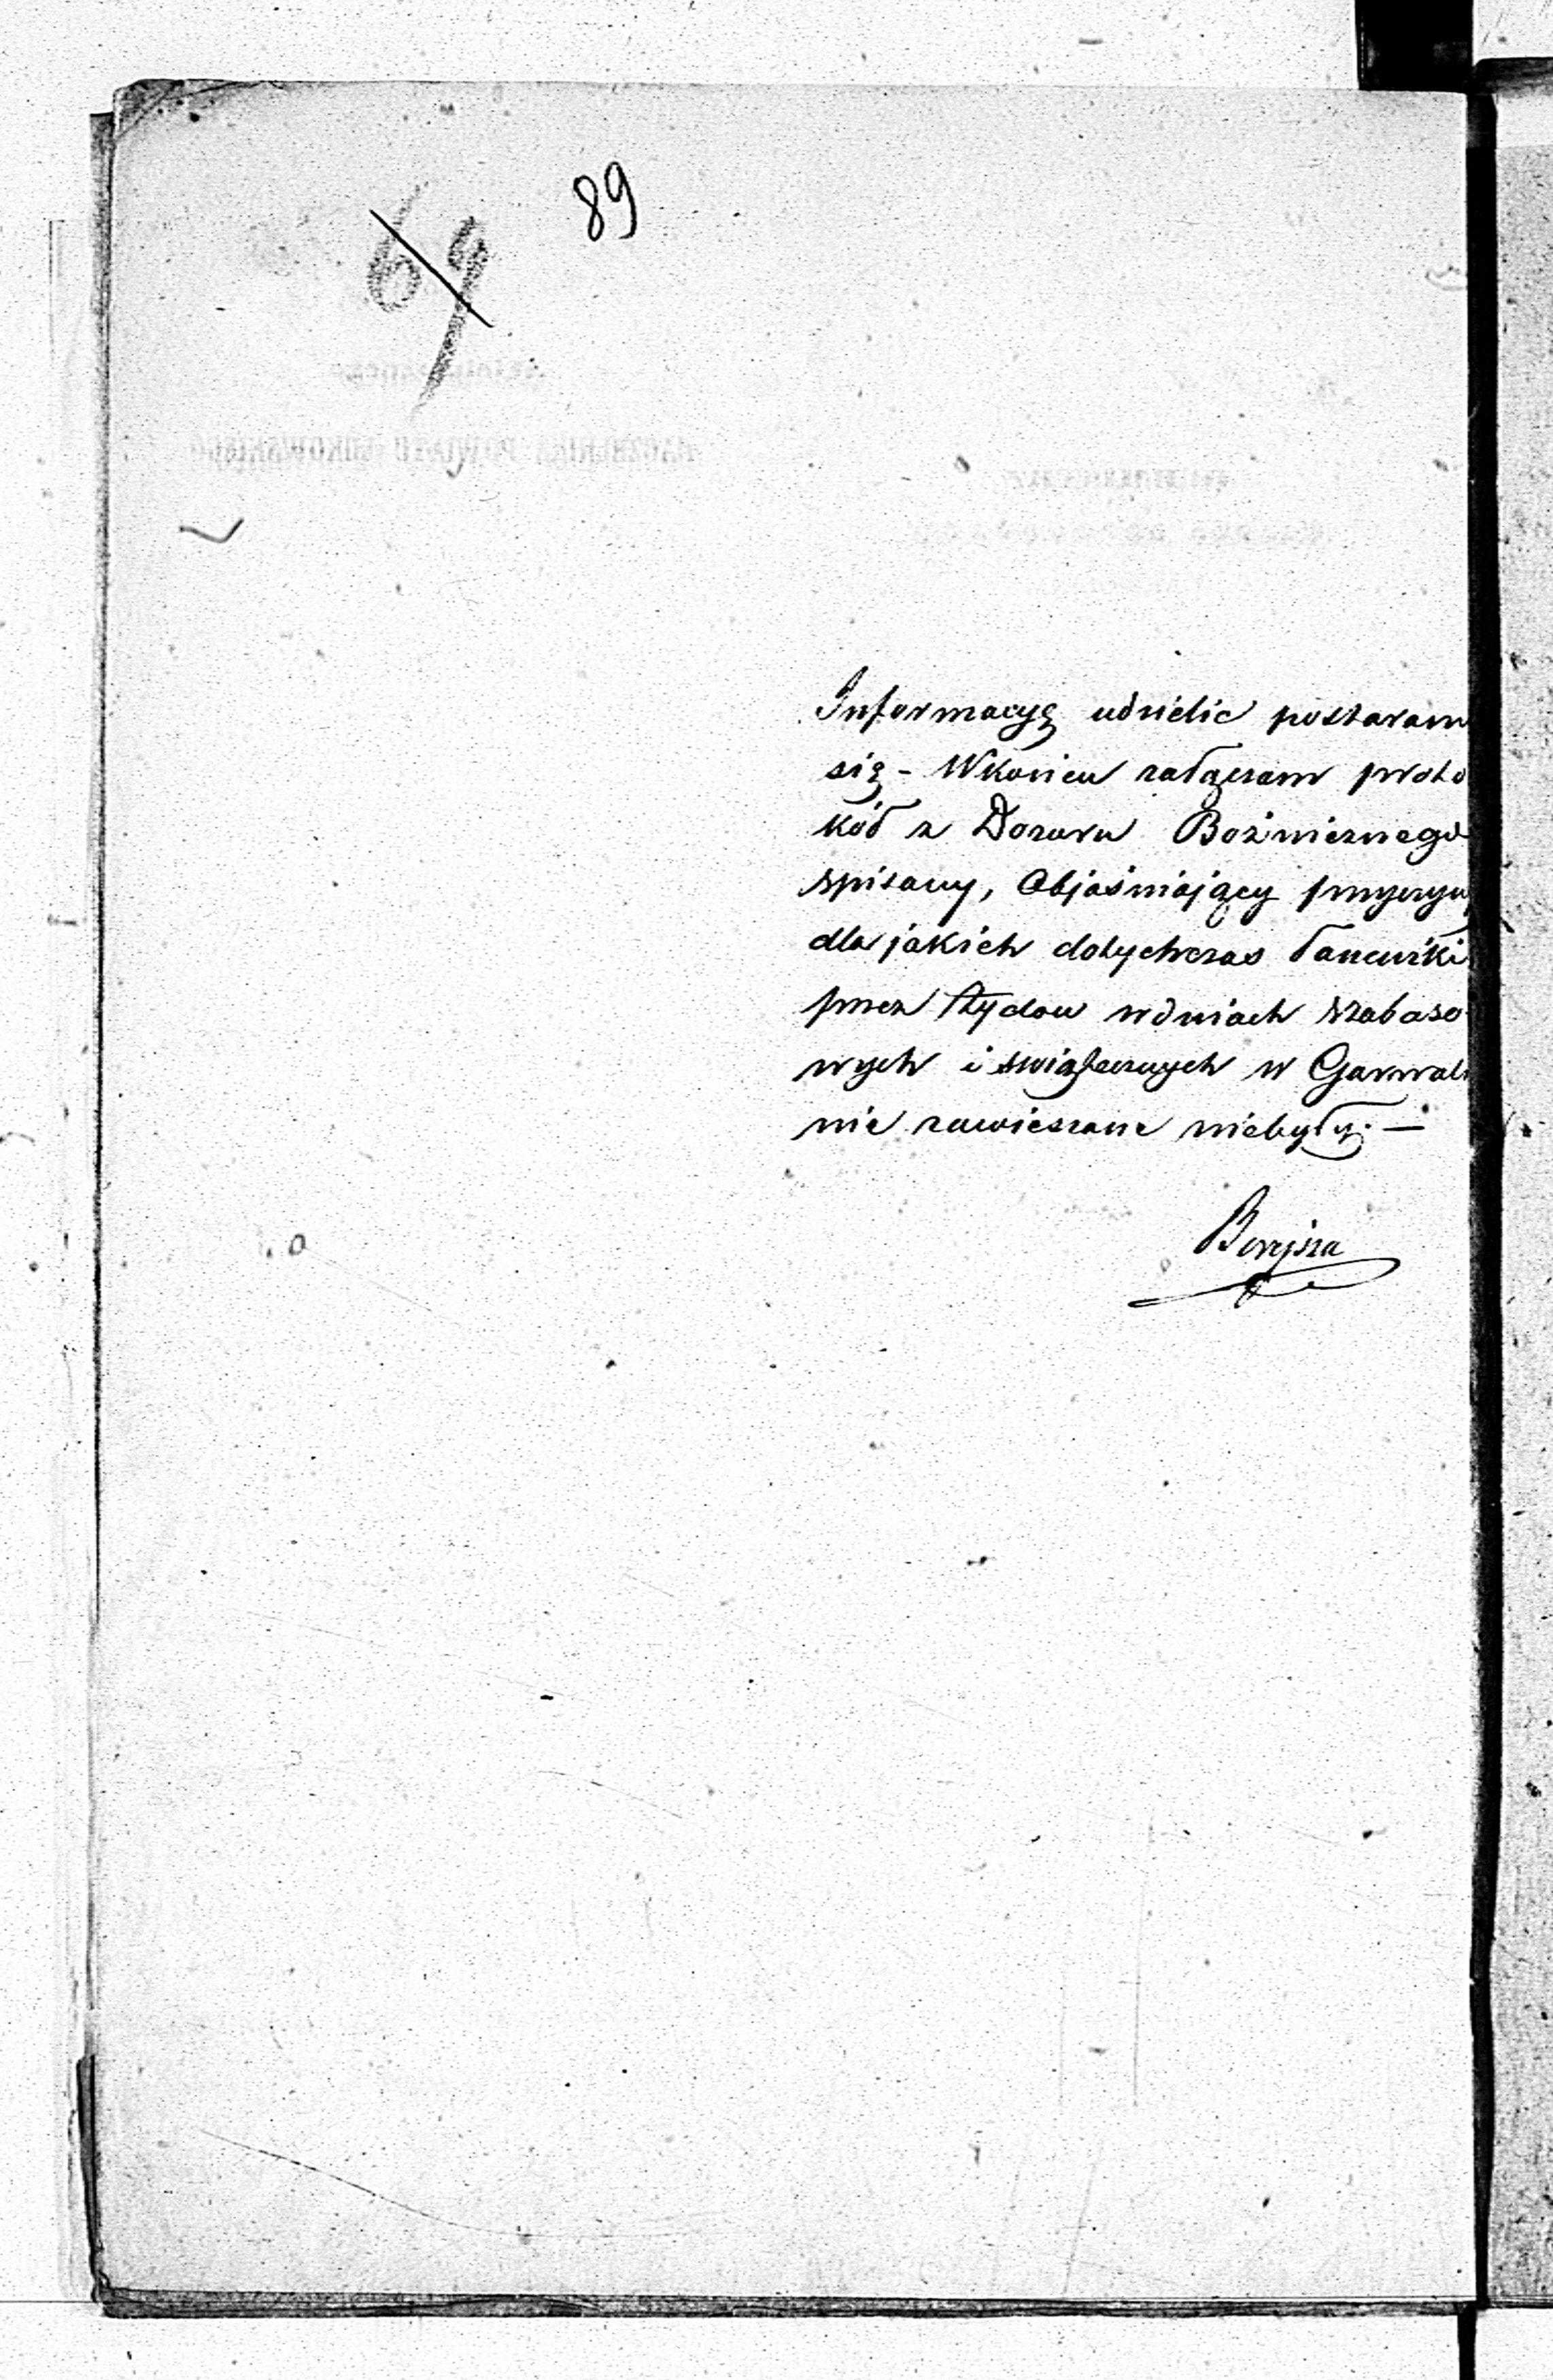 89
69
Informacyę udzielić postaram
się - Wkońcu załączam proto
kół z Dozoru Bożnicznego
spisany, Objaśniający przyczyny
dla jakich dotychczas łancuszki
przez Żydow wdniach szabaso
wych i swiątecznych w Garwoli
nie zawieszane niebyły. —